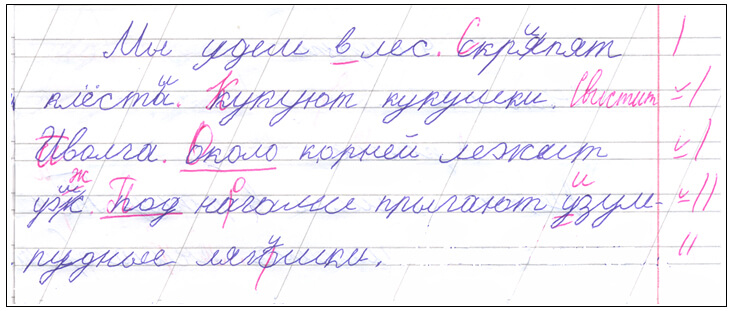 Мы идем в лес. Скрипят
клёсты. Кукуют кукушки. Свистит
Иволга. Около корней лежит
уж. Под нагами прыгают узум-
рудные лягошки.